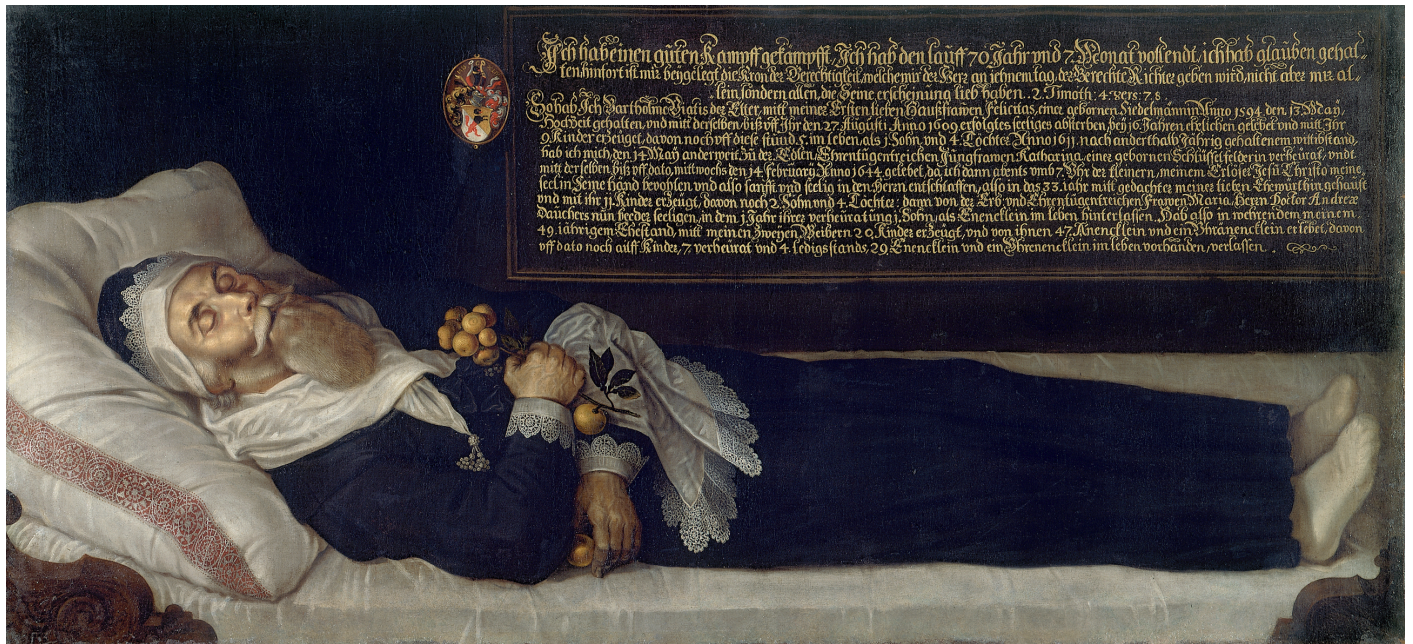 Ich hab einen guten Kampff gekämpfft, Ich hab den lauff 70 Jahr vnd 7. Monat vollendt, ich hab glauben gehal-
ten, hinfort ist mir beygelegt die Kron der Gerechtigkeit, welche mir der Herr an jehnem tag, der Gerechte Richter geben wird, nicht aber mir al-
lein sondern allen, die Seine erscheinung lieb haben. 2. Timoth: 4. vers: 7. 8.
So hab Ich Bartholme Viatis der Elter, mitt meiner Ersten lieben Haußfrawen Felicitas, einer gebornen Siedelmännin Anno 1594. den 13. May,
Hochzeit gehalten, vnd mitt derselben biß vff Ihr den 27 Augusti Anno 1609 erfolgtes seeliges absterben, bey 16 Jahren ehelichen gelebet vnd mit Ihr
9. Kinder erzeuget, davon noch vff diese stund, 5. im leben, als 1. Sohn, vnd 4. Töchter. Anno 1611. nach anderthalb Jährig gehaltenem wittibstand,
hab ich mich den 14 May anderweit zu der Edlen, Ehrentugentreichen Jungfrawen Katharina, einer gebornen Schlüsselfelderin verheurat, vndt
mitt derselben biß vff dato, mittwochs den 14. february, Anno 1644 gelebet, da ich dann abents vmb 7. Vhr der kleinern, meinem Erlöser Jesu Christo meine
seel in Seine hand bevohlen vnd also sanfft vnd seelig in den Herrn entschlaffen, also in das 33. jahr mitt gedachter meiner lieben Ehewürthin gehaust
vnd mit ihr 11. Kinder erzeugt, davon noch 2. Sohn vnd 4. Töchter: dann von der Erb: vnd Ehrentugentreichen Frawen Maria, Herrn Doctor Andreæ
Dauchers nun beeder seeligen, in dem 1. Jahr ihrer verheuratung 1. Sohn, als Enencklein im leben hinterlassen. Hab also in wehrendem meinem
49. jährigem Ehestand, mitt meinen zweyen Weibern 20 Kinder erzeugt, vnd von ihnen 47. Enencklein vnd ein Vhränencklein erlebet, davon
vff dato noch ailff Kinder, 7. verheurat vnd 4. ledigs stands, 29. Enencklein vnd ein Vhrenencklein im leben vorhanden, verlassen.